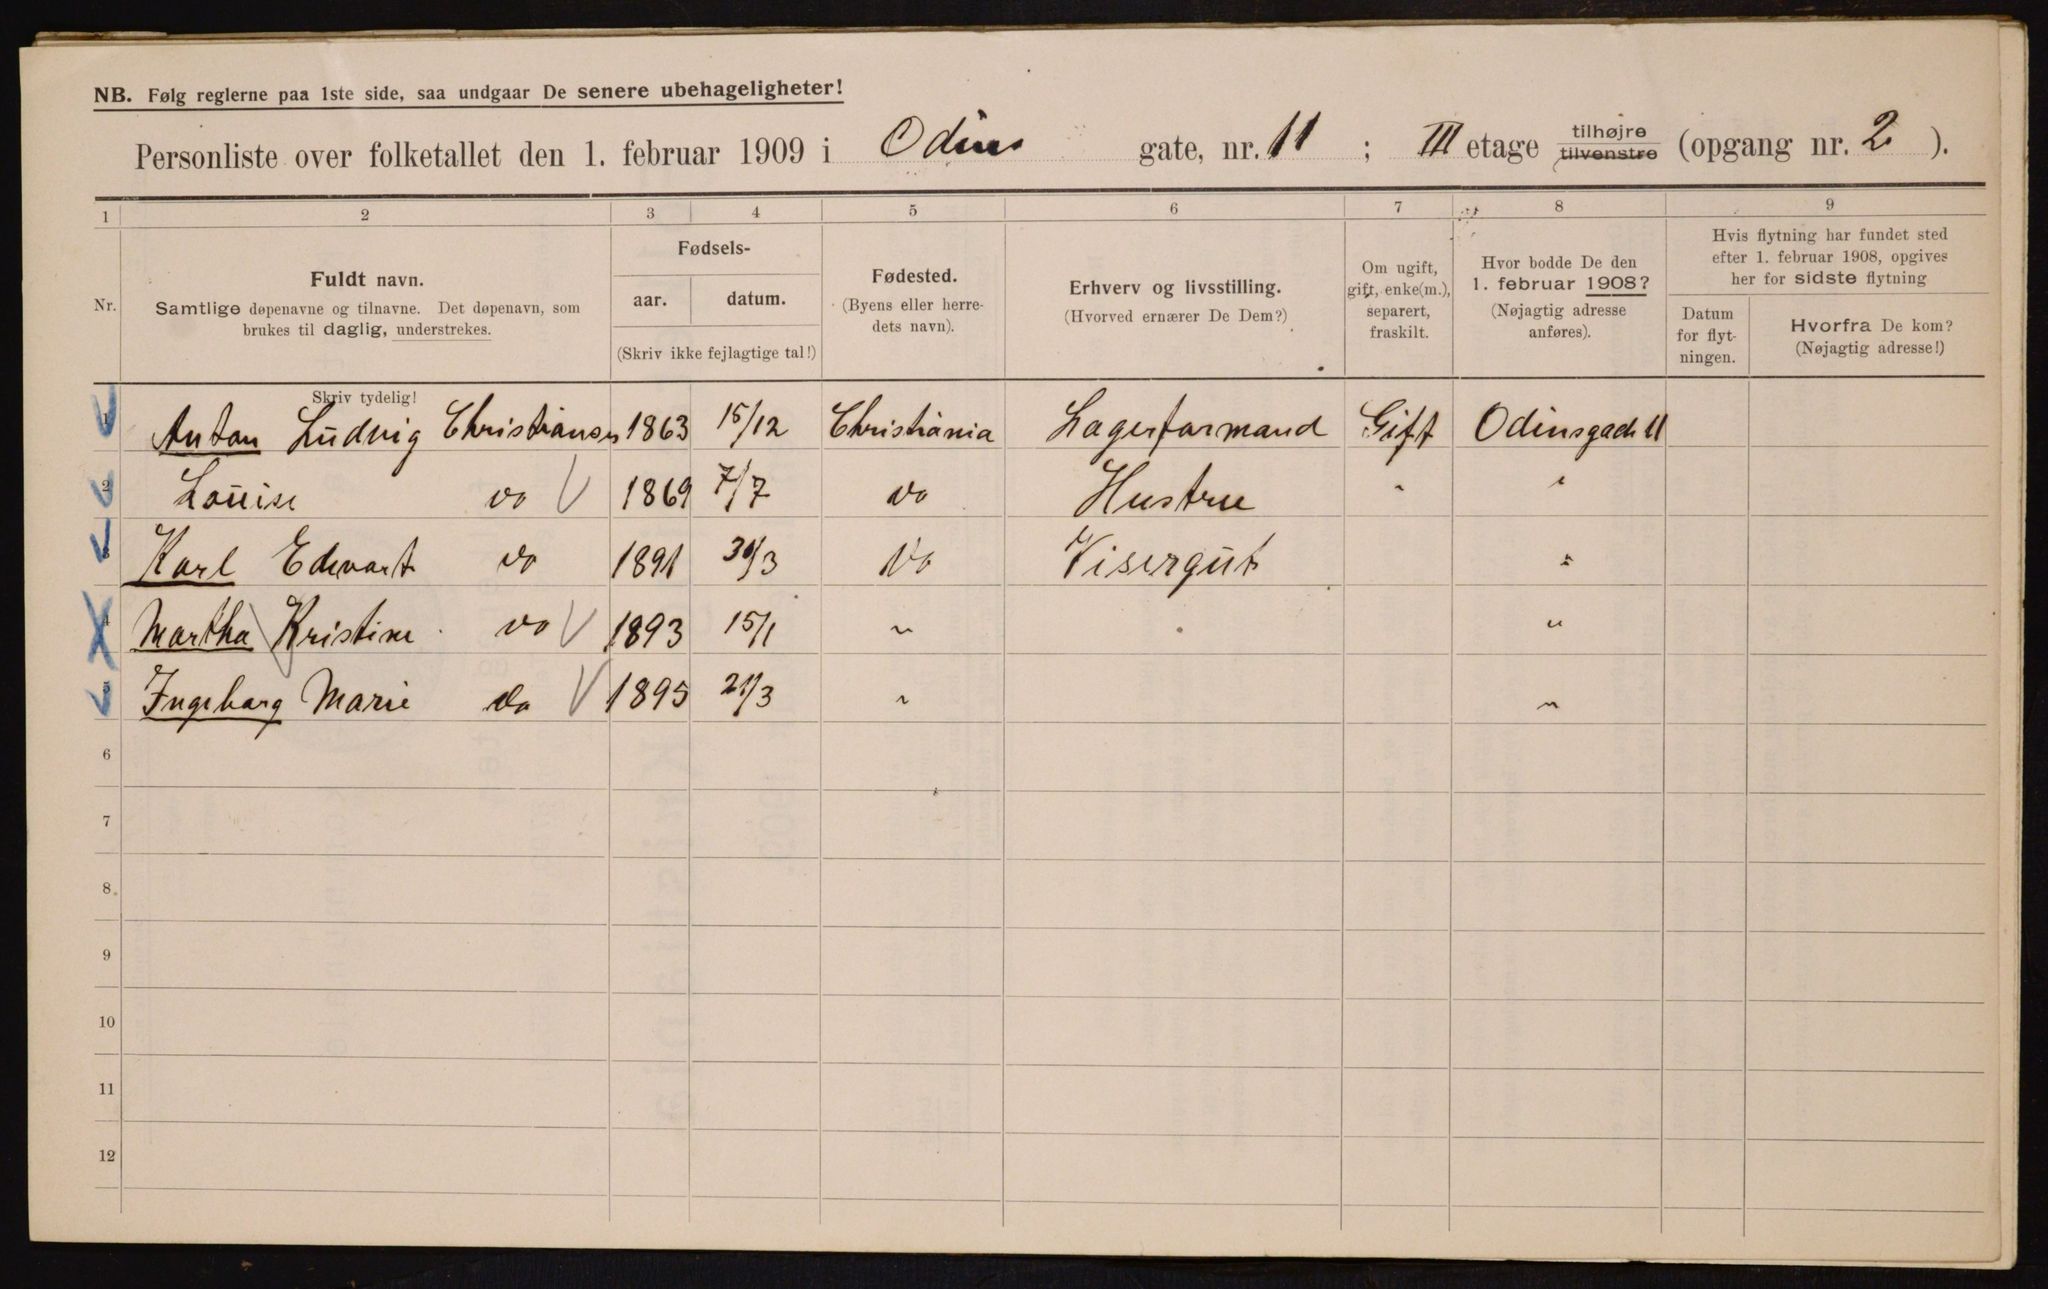 NB. Følg reglerne paa 1ste side, saa undgaar De senere ubehageligheter!
Personliste over folketallet den 1. februar 1909 i Odins gate, nr. 11 ; III etage tilhøjre tilvenstre (opgang nr. 2 ).
1 2 3 4 5 6 7 8 9
Nr.
Fuldt navn.
Samtlige døpenavne og tilnavne. Det døpenavn, som
brukes til daglig, understrekes.
Skriv tydelig!
Fødsels-
aar. datum.
(Skriv ikke fejlagtige tal!)
Fødested.
(Byens eller herre-
dets navn).
Erhverv og livsstilling.
(Hvorved ernærer De Dem?)
Om ugift,
gift, enke(m.),
separert,
fraskilt.
Hvor bodde De den
1. februar 1908?
(Nøjagtig adresse
anføres).
Hvis flytning har fundet sted
efter 1. februar 1908, opgives
her for sidste flytning
Datum
for flyt-
ningen.
Hvorfra De kom?
(Nøjagtig adresse!)
1 Anton Ludvig Christiansen 1863 15/12 Christiania Lagerformand Gift Odinsgade 11
2 Louise do 1869 7/7 do Hustru " "
3 Karl Edvart do 1891 30/3 do Visergut "
4 Martha Kristine do 1893 15/1 " "
5 Ingeborg Marie do 1895 21/3 " "
6
7
8
9
10
11
12